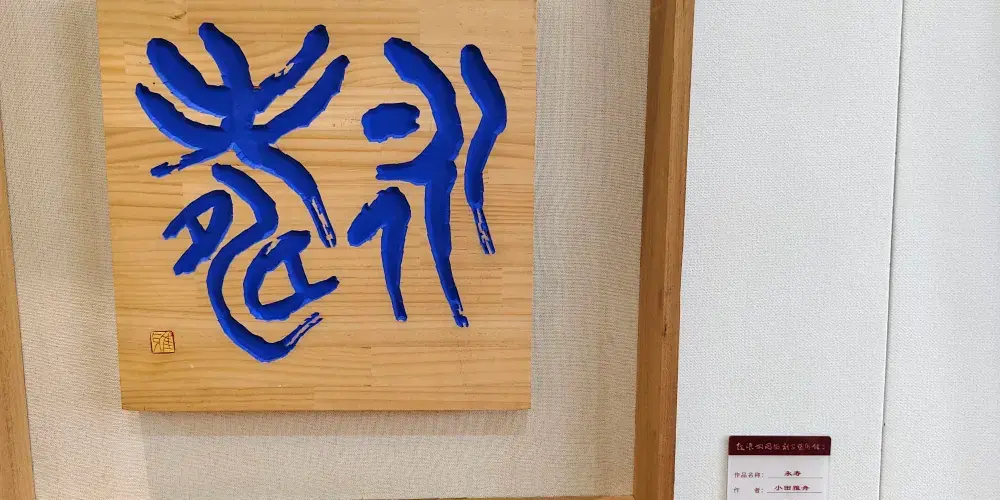 永壽
雅
作品名称: 永寿
作 者: 小田雅舟